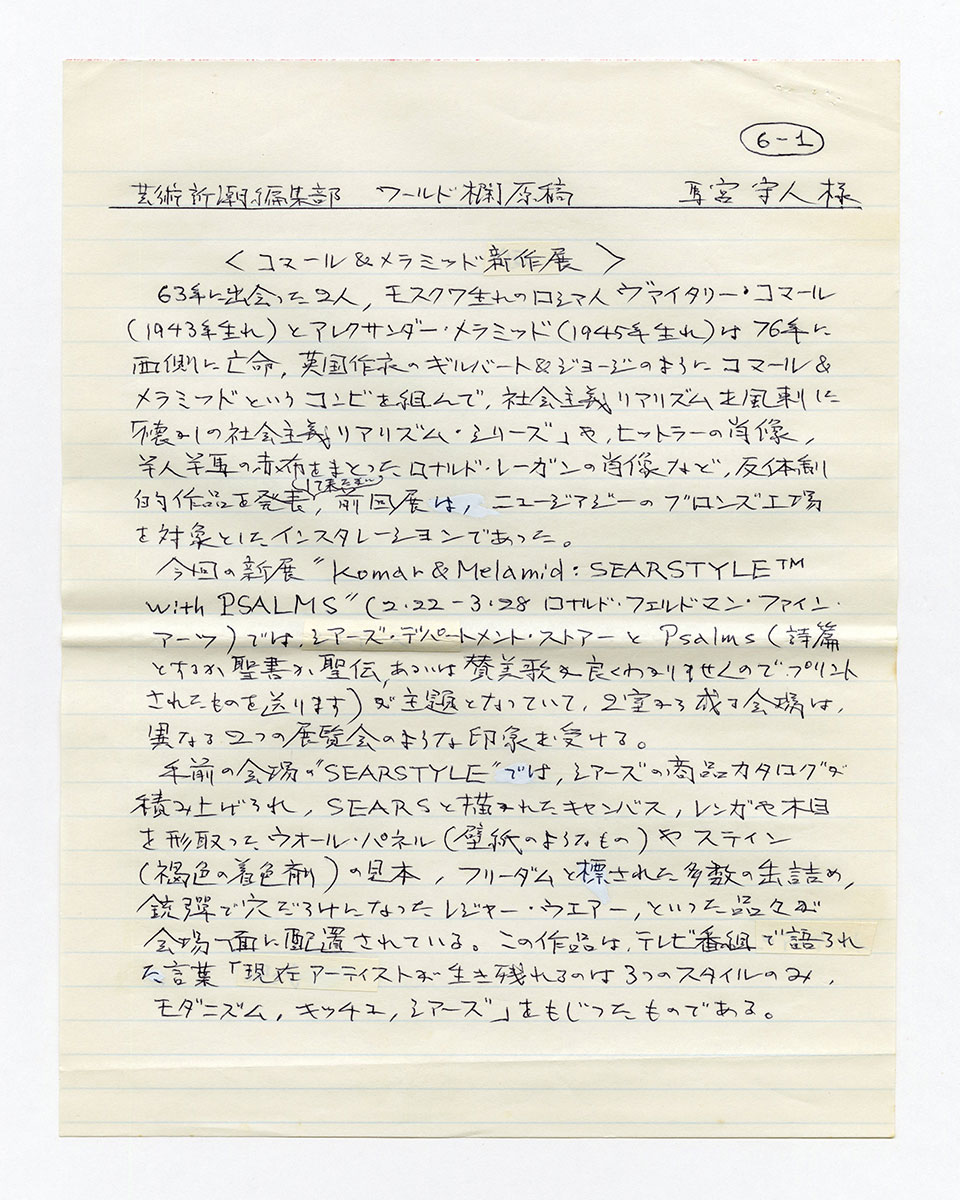 6-1
芸術新潮編集部 ワールド欄原稿 馬宮守人様
〈コマール&メラミッド新作展〉
63年に出会った2人,モスクワ生れのロシア人ヴァイタリー・コマール
(1943年生れ)とアレクサンダー・メラミッド(1945年生れ)は76年に
西側に亡命,英国作家のギルバート&ジョージのようにコマール&
メラミッドというコンビを組んで,社会主義リアリズムを風刺した
「懐かしの社会主義リアリズム・シリーズ」や,ヒットラーの肖像,
半人半馬の赤布をまとったロナルド・レーガンの肖像など,反体制
して来たが
的作品を発表,前回展は,ニュージアジーのブロンズ工場
を対象としたインスタレーションであった。
今回の新展“Komar&Melamid:SEARSTYLE™
with PSALMS”(2.22-3.28 ロナルド・フェルドマン・ファイン・
アーツ)では,シアーズ・デパートメント・ストアーとPsalms(詩篇
とするか聖書か聖伝,あるいは賛美歌か良くわかりませんので,プリント
されたものを送ります)が主題となっていて,2室から成る会場は,
異なる2つの展覧会のような印象を受ける。
手前の会場の“SEARSTYLE”では,シアーズの商品カタログが
積み上げられ,SEARSと描かれたキャンバス,レンガや木目
を形取ったウオール・パネル(壁紙のようなもの)やステイン
(褐色の着色剤)の見本,フリーダムと標された多数の缶詰め,
銃弾で穴だらけになったレジャー・ウエアー,といった品々が
会場一面に配置されている。この作品は,テレビ番組で語られ
た言葉「現在アーティストが生き残れるのは3つのスタイルのみ,
モダニズム,キッチュ,シアーズ」をもじったものである。